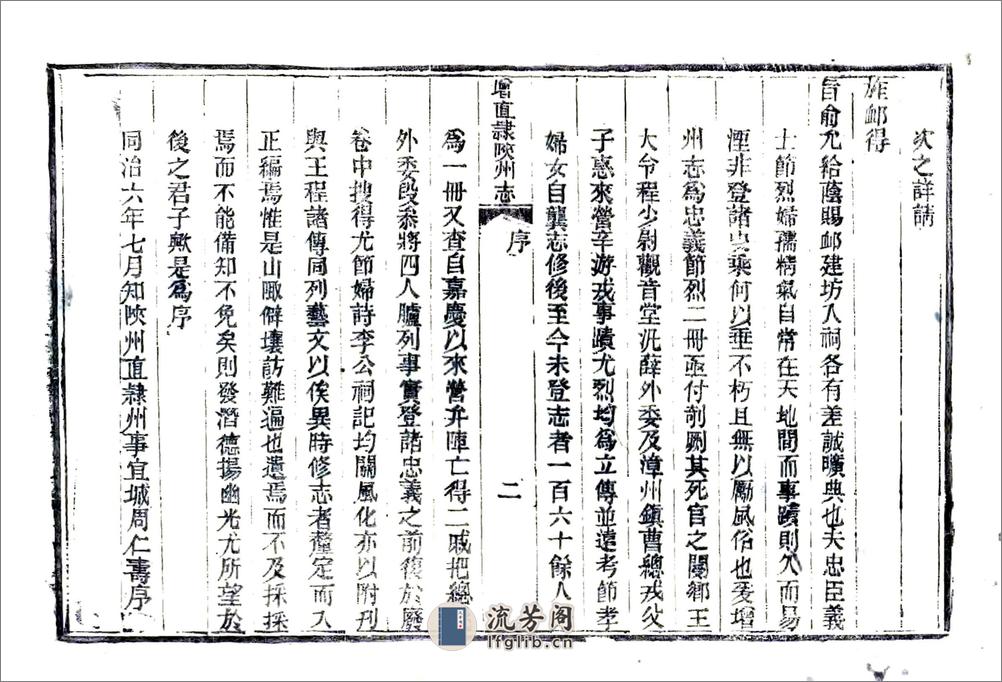 次之詳請
旌卹得
旨俞允給蔭賜卹建坊入祠各有差誠曠典也夫忠臣義
士節烈婦孺精氣自常在天地間而事蹟則久而易
湮非登諸史乘何以垂不朽且無以勵風俗也爰增
州志爲忠義節烈二冊亟付剞劂其死官之闗鄉王
大令程少尉觀音堂汛薛外委及漳州鎮曹總戎父
子惠來營辛游戎事蹟尤烈均爲立傳並遠考節孝
婦女自龔志修後至今未登志者一百六十餘人
增直隸陝州志
序
二
爲一冊又查自嘉慶以來營弁陣亡得二戚把總
外委段叅將四人臚列事實登諸忠義之前復於廢
卷中搜得尤節婦詩李公祠記均關風化亦以附刊
與王程諸傳同列藝文以俟異時修志者釐定而入
正編焉惟是山陬僻壤訪難遍也遺焉而不及採採
焉而不能備知不免矣則發潛德揚幽光尤所望於
後之君子歟是爲序
同治六年七月知陝州直隸州事宜城周仁壽序
流芳阁
lfglib.cn